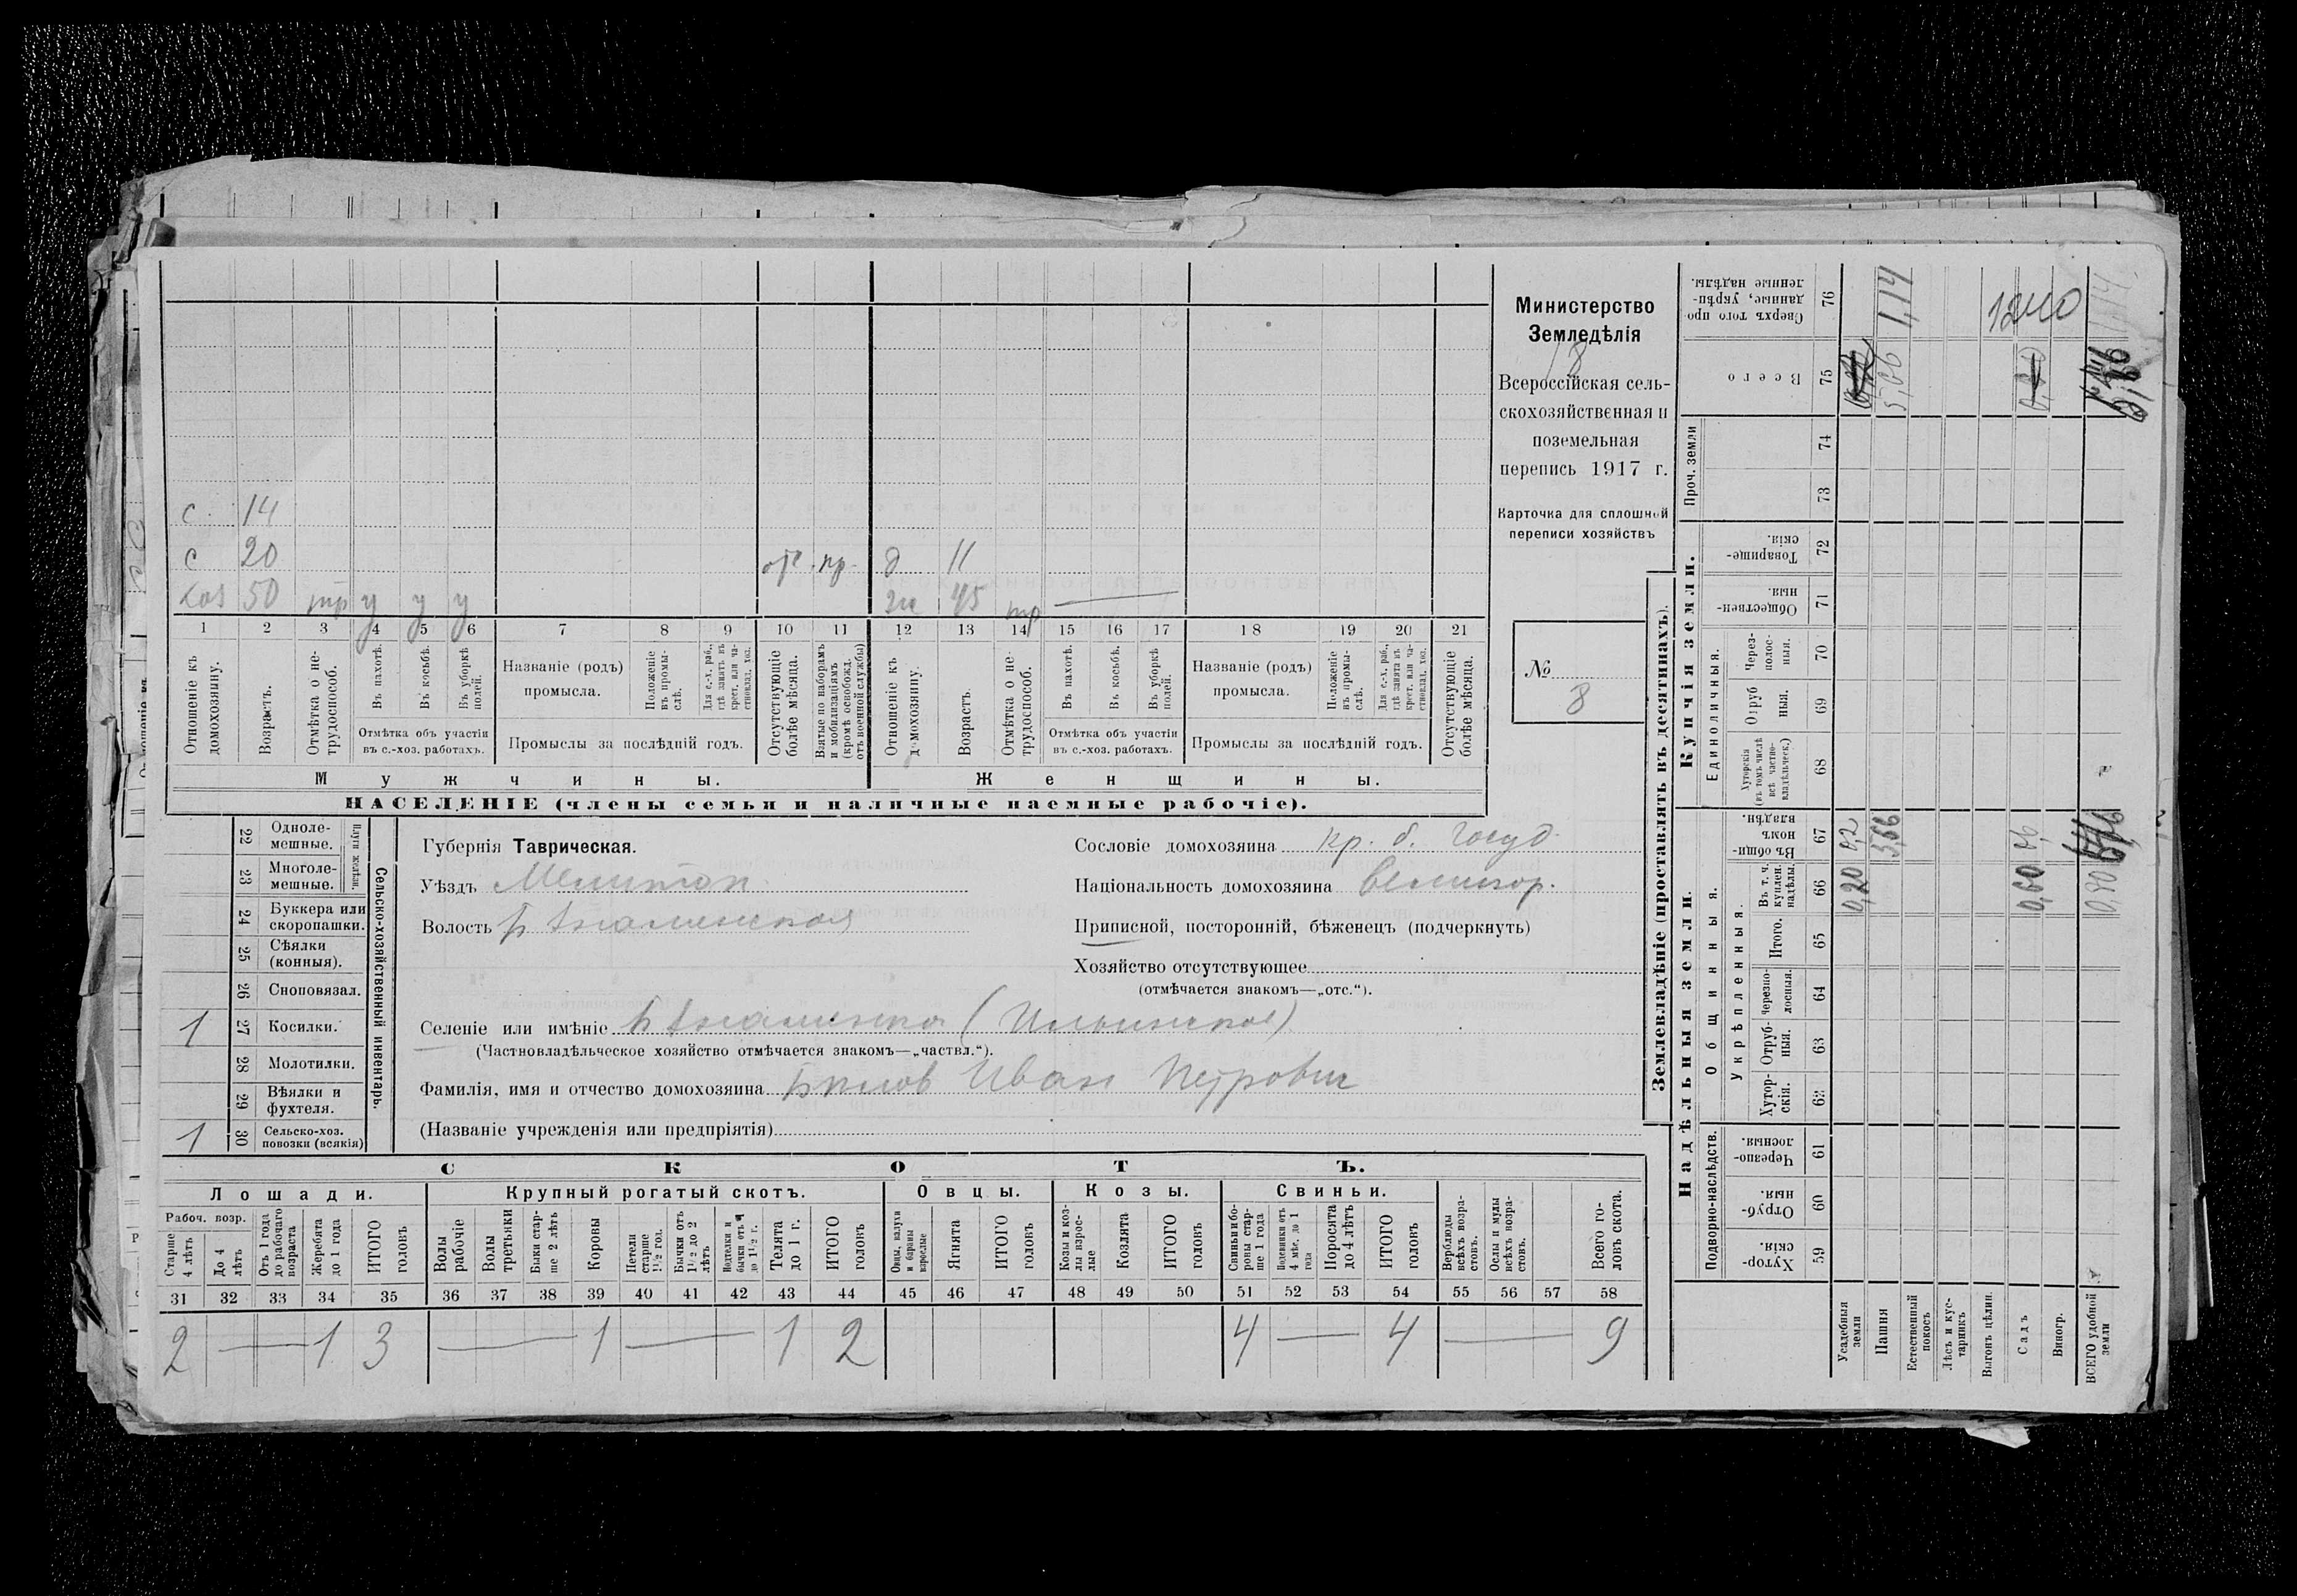 с. 14
с 20 отс. пр. д 11
хоз 50 тр у у у ж 45 тр
1 2 3 4 5 6 7 8 9 10 11 12 13 14 15 16 17 18 19 20 21
Отношеніе къ домохозяину.
Возрастъ.
Отмѣтка о не-
трудоспособ.
Въ пахотѣ.
Въ косьбѣ.
Въ уборкѣ полей.
Отмѣтка объ участіи
въ с.-хоз. работахъ.
Названіе (родъ)
промысла.
Положеніе въ промы-
слѣ.
Для с.-х. раб., гдѣ занятъ въ крест. или ча-
стновлад. хоз.
Промыслы за послѣдній годъ.
Отсутствующіе болѣе мѣсяца.
Взятые по наборамъ и мобилизаціямъ (кромѣ освобожд. отъ военной службы)
Отношеніе къ домохозяину.
Возрастъ.
Отмѣтка о не-
трудоспособ.
Въ пахотѣ.
Въ косьбѣ.
Въ уборкѣ полей.
Отмѣтка объ участіи
въ с.-хоз. работахъ.
Названіе (родъ)
промысла.
Положеніе въ промы-
слѣ.
Для с.-х. раб., гдѣ занята въ крест. или ча-
стновлад. хоз.
Промыслы за послѣдній годъ.
Отсутствующіе болѣе мѣсяца.
Мужчины.
Женщины.
НАСЕЛЕНІЕ (члены семьи и наличные наемные рабочіе).
Министерство
Земледѣлія
Всероссійская сель-
скохозяйственная и
поземельная
перепись 1917 г.
Карточка для сплошной
переписи хозяйствъ
№
8
Сельско-хозяйственный инвентарь.
Плуги желѣзн.
22 Одноле-
мешные.
23 Многоле-
мешные.
24 Буккера или
скоропашки.
25 Сѣялки
(конныя).
26 Сноповязал.
1 27 Косилки.
28 Молотилки.
29 Вѣялки и
фухтеля.
1 30 Сельско-хоз.
повозки (всякія)
Губернія Таврическая.
Уѣздъ Мелитоп.
Волость Б Знаменская
Сословіе домохозяина кр. б. Госуд.
Національность домохозяина великор.
Приписной, посторонній, бѣженецъ (подчеркнуть)
Хозяйство отсутствующее
(отмѣчается знакомъ—„отс.“).
Селеніе или имѣніе Б Знаменка (Ильинское)
(Частновладѣльческое хозяйство отмѣчается знакомъ—„частвл.“).
Фамилія, имя и отчество домохозяина Иван Петрович
(Названіе учрежденія или предпріятія)
СКОТЪ.
Лошади.
Крупный рогатый скотъ.
Овцы.
Козы.
Свиньи.
Рабоч. возр.
Старше 4 лѣтъ
До 4 лѣтъ
Отъ 1 года до рабочаго возраста
Жеребята до 1 года
ИТОГО головъ
Волы рабочіе
Волы третьяки
Быки стар-
ше 2 лѣтъ
Коровы
Нетели старше 1½ год.
Бычки отъ 1½ до 2 лѣтъ
Телята до 1 г.
ИТОГО головъ
Овцы, валухи и бараны взрослые
Ягнята
ИТОГО головъ
Козы и коз-
лы взрос-
лые
Козлята
ИТОГО головъ
Свиньи и бо-
ровы стар-
ше 1 года
Подсвинки отъ 4 мѣс. до 1 года
Поросята до 4 лѣтъ
ИТОГО головъ
Верблюды всѣхъ возра-
стовъ.
Ослы и мулы всѣхъ возра-
стовъ.
Всего го-
ловъ скота.
31 32 33 34 35 36 37 38 39 40 41 42 43 44 45 46 47 48 49 50 51 52 53 54 55 56 57 58
2 — 1 3 — 1 — 1 2 4 — 4 — 9
Землевладѣніе (проставлять въ десятинахъ).
Надѣльныя земли.
Купчія земли.
Проч. земли
Подворно-наслѣдств.
Общинныя.
Укрѣпленныя.
Единоличныя.
Сверхъ того про-
данные, укрѣп-
ленные надѣлы. 76
Всего 75
74
73
Товарище-
скія. 72
Обществен-
ныя. 71
Через-
полос-
ныя. 70
Отруб
ныя. 69
Хуторскія
(въ томъ числѣ
всѣ частно-
владѣльческ.) 68
Въ общи-
номъ
владѣн. 67
Въ т. ч.
куплен.
надѣлы. 66
Итого. 65
Черезпо-
лосныя. 64
Отруб-
ныя. 63
Хутор-
скія. 62
Черезпо-
лосныя. 61
Отруб-
ныя. 60
Хутор-
скія. 59
Усадебныя земли
Пашня
Естественный покосъ
Лѣсъ и кус-
тарникъ
Выгонъ цѣлин.
Садъ
Виногр.
ВСЕГО удобной земли
1,14
5,66
0,20
0,60